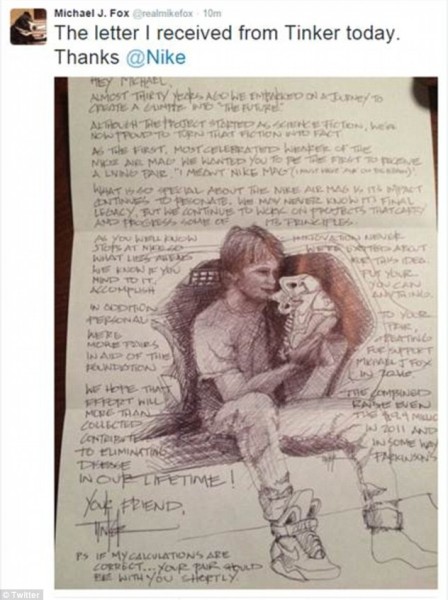 Michael J. Fox @realmikefox · 10m
The letter I received from Tinker today.
Thanks @Nike
HEY MICHAEL,
ALMOST THIRTY YEARS AGO WE EMBARKED ON A JOURNEY TO
CREATE A GLIMPSE INTO "THE FUTURE."
ALTHOUGH THE PROJECT STARTED AS SCIENCE FICTION, WE'RE
NOW PROUD TO TURN THAT FICTION INTO FACT.
AS THE FIRST, MOST CELEBRATED WEARER OF THE
NIKE AIR MAG WE WANTED YOU TO BE THE FIRST TO RECEIVE
A LIVING PAIR. "I MEANT NIKE MAG"
WHAT IS SO SPECIAL ABOUT THE NIKE AIR MAG IS ITS IMPACT
CONTINUES TO RESONATE. WE MAY NEVER KNOW ITS FINAL
LEGACY, BUT WE CONTINUE TO WORK ON PROJECTS THAT CARRY
AND PROGRESS SOME OF ITS PRINCIPLES.
AS YOU WELL KNOW INNOVATION NEVER
STOPS AT NIKE SO WE'RE EXCITED ABOUT
WHAT LIES AHEAD THIS IDEA.
WE KNOW IF YOU PUT YOUR
MIND TO IT, YOU CAN
ACCOMPLISH ANYTHING.
IN ADDITION TO YOUR
PERSONAL PAIR,
WE'RE CREATING
MORE PAIRS FOR SUPPORT
IN AID OF THE MICHAEL J FOX
FOUNDATION IN 2016.
WE HOPE THAT THE COMBINED
EFFORT WILL RAISE EVEN
MORE THAN THE
COLLECTED IN 2011 AND
CONTRIBUTE IN SOME WAY
TO ELIMINATING PARKINSON'S
DISEASE
IN OUR LIFETIME!
YOUR FRIEND,
TINKER
PS IF MY CALCULATIONS ARE
CORRECT... YOUR PAIR SHOULD
BE WITH YOU SHORTLY.
© Twitter